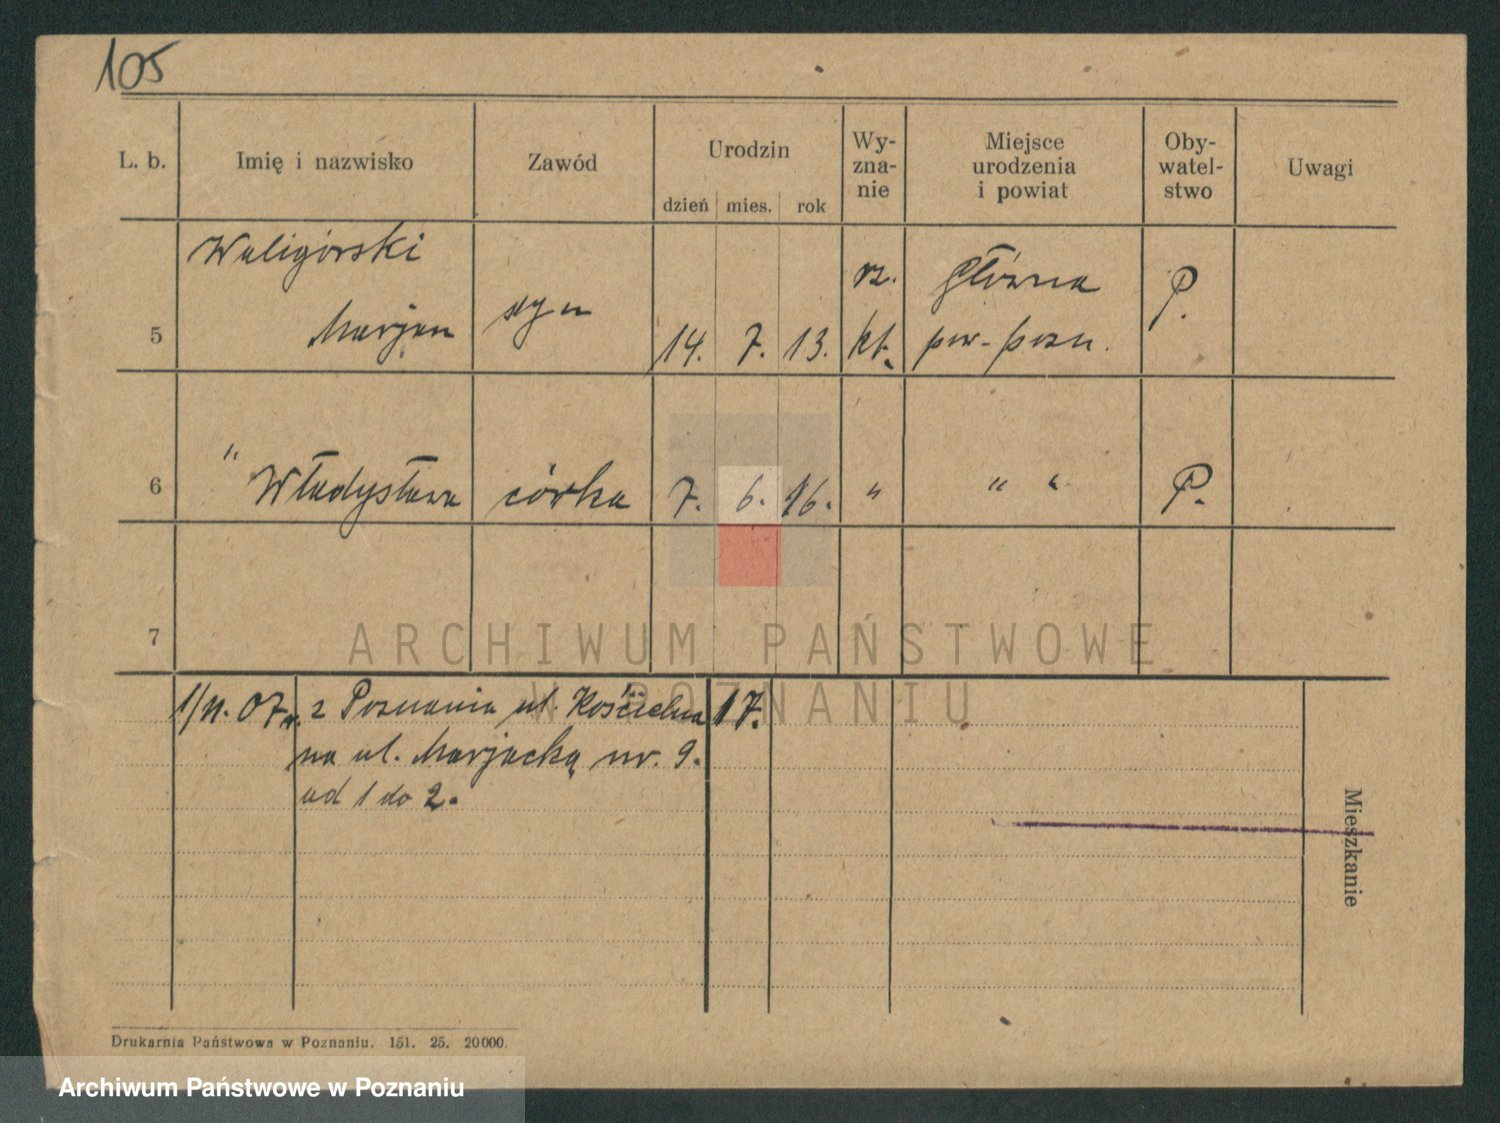 105
L. b. Imię i nazwisko Zawód Urodzin Wy-zna-nie Miejsce urodzenia i powiat Oby-watel-stwo Uwagi
dzień mies. rok
Waligórski rz. Główna
5 Marjan syn 14. 7. 13. kt. pow. pozn. P.
6 " Władysława córka 7. 6. 16. " " " P.
7
ARCHIWUM PAŃSTWOWE
W POZNANIU
1/11. 07 r. z Poznania ul. Kościelna 17.
na ul. Marjacką nr. 9.
od 1 do 2.
Mieszkanie
Drukarnia Państwowa w Poznaniu. 151. 25. 20000.
Archiwum Państwowe w Poznaniu